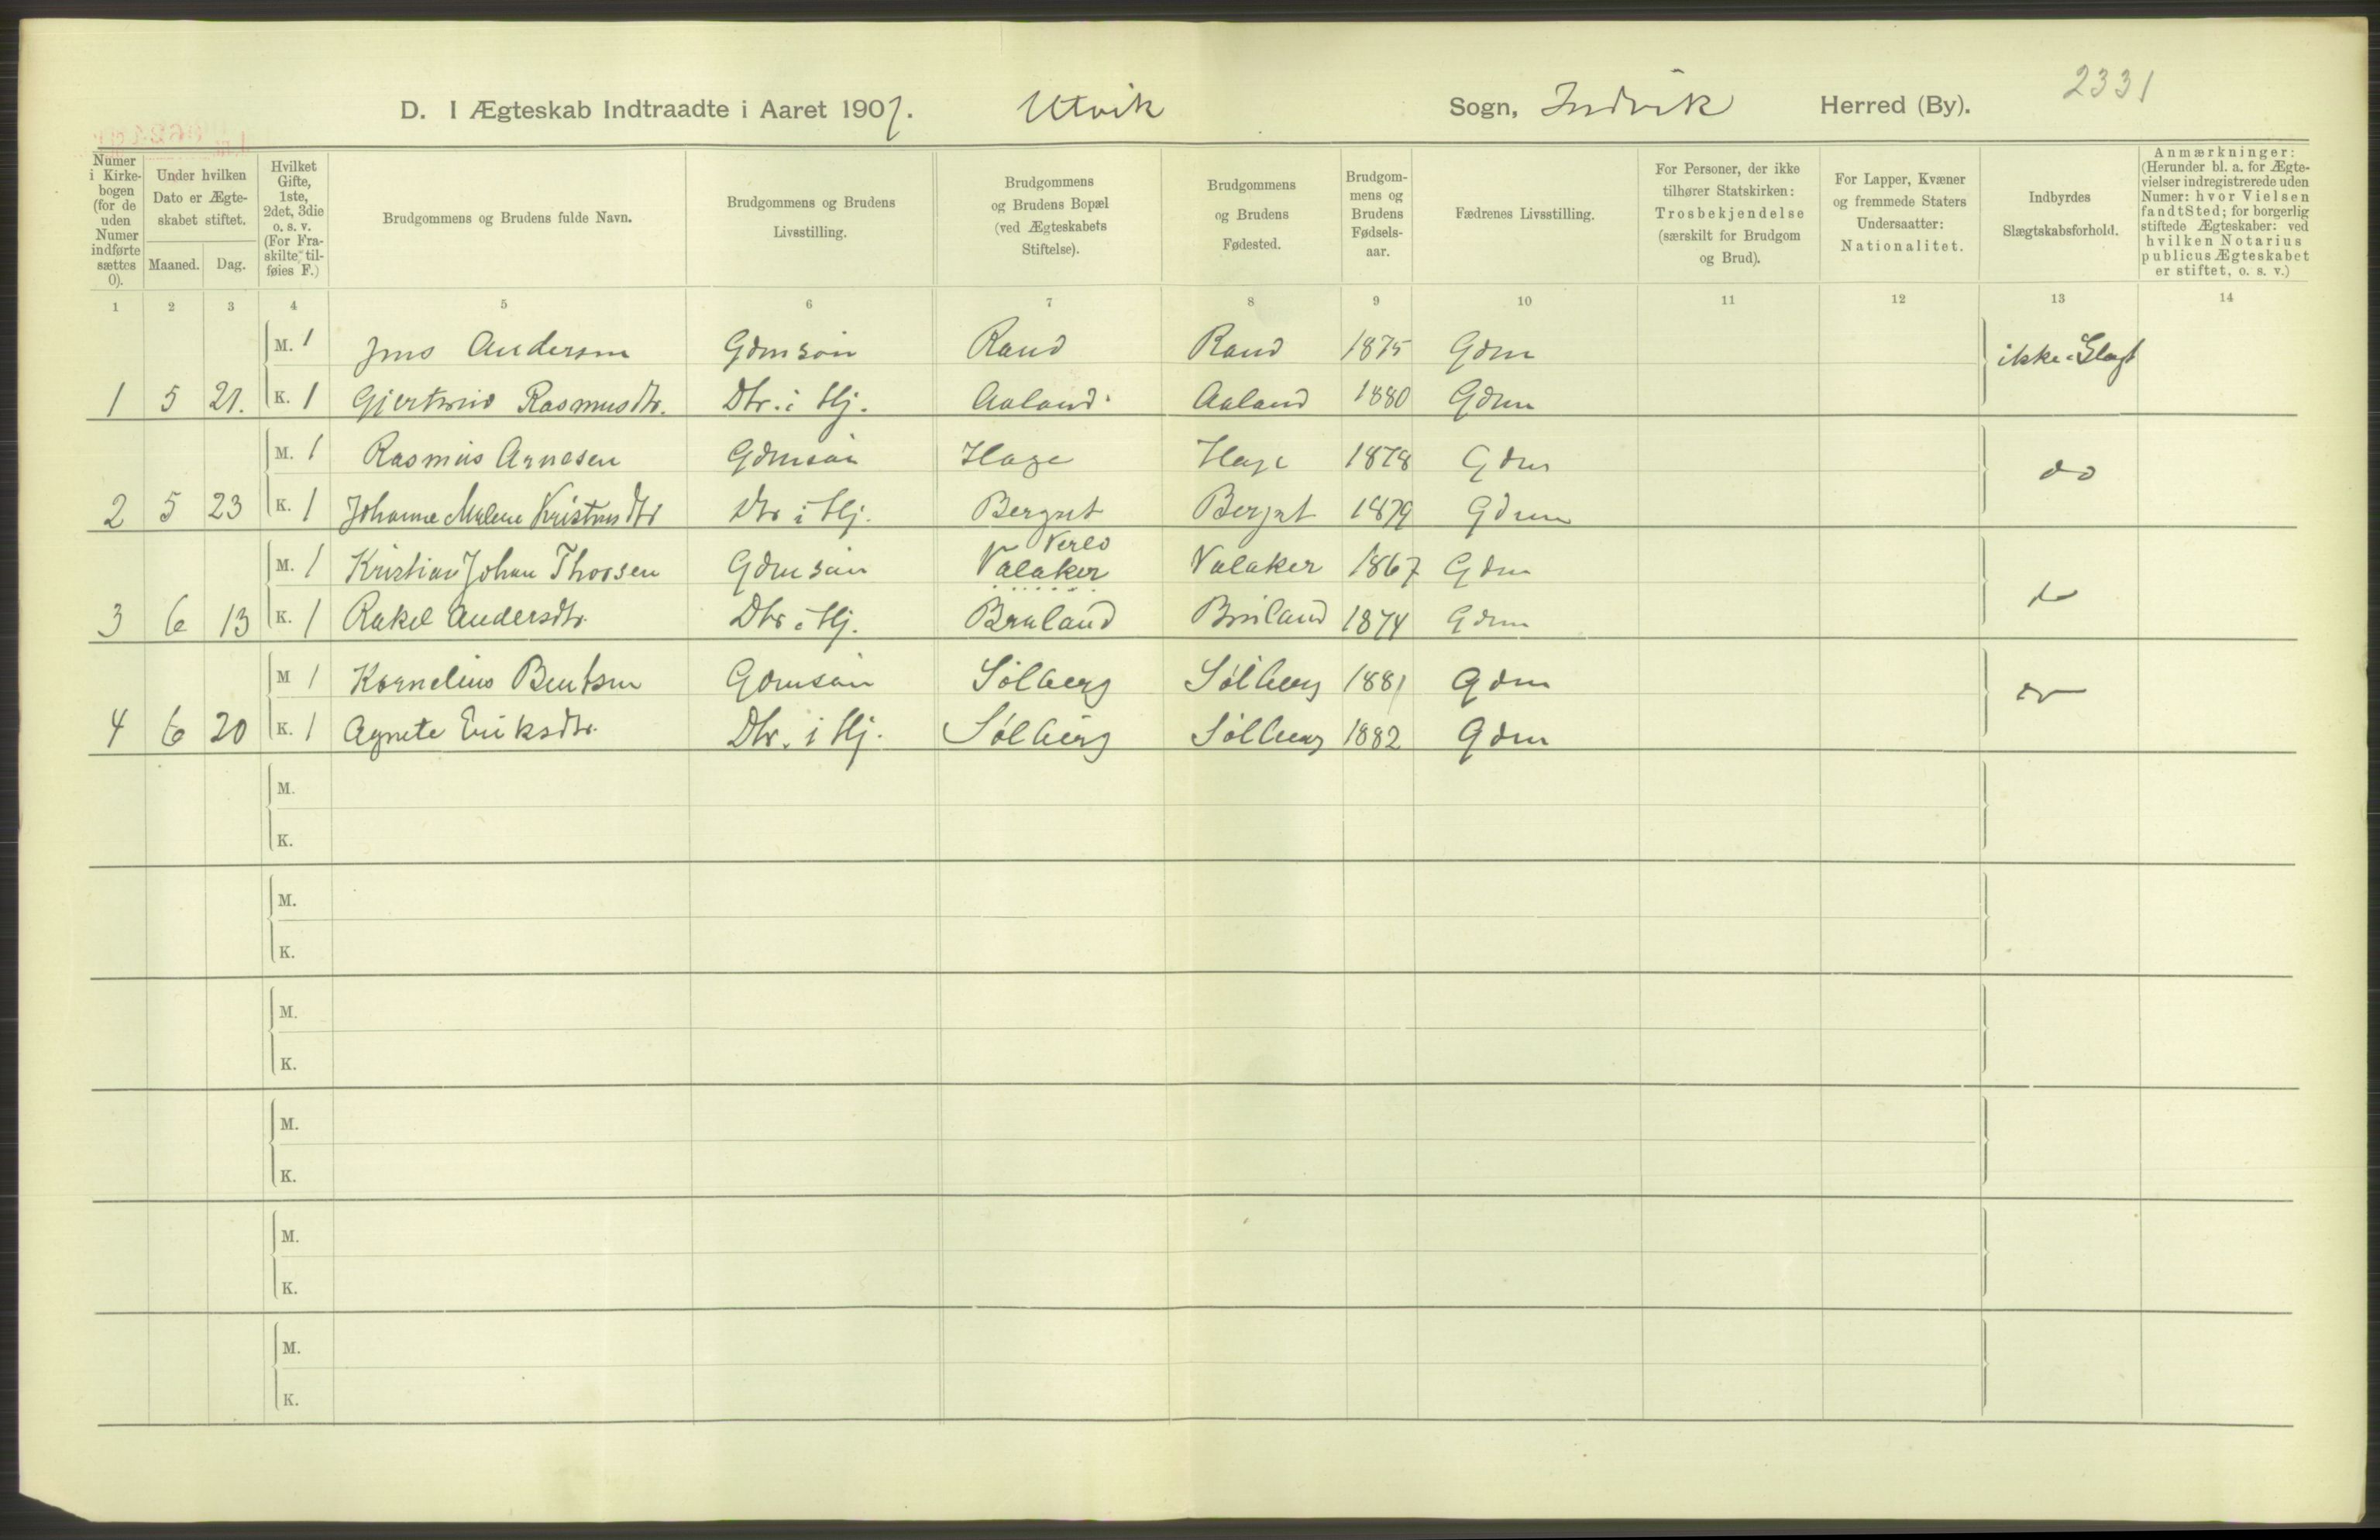 2331
D. I Ægteskab Indtraadte i Aaret 1907. Utvik Sogn, Indvik Herred (By).
Numer i Kirkebogen (for de uden Numer indførte sættes 0).
Under hvilken Dato er Ægteskabet stiftet.
Maaned. Dag.
Hvilket Gifte, 1ste, 2det, 3die o. s. v. (For Fraskilte tilføies F.)
Brudgommens og Brudens fulde Navn.
Brudgommens og Brudens Livsstilling.
Brudgommens og Brudens Bopæl (ved Ægteskabets Stiftelse).
Brudgommens og Brudens Fødested.
Brudgommens og Brudens Fødselsaar.
Fædrenes Livsstilling.
For Personer, der ikke tilhører Statskirken: Trosbekjendelse (særskilt for Brudgom og Brud).
For Lapper, Kvæner og fremmede Staters Undersaatter: Nationalitet.
Indbyrdes Slægtskabsforhold.
Anmærkninger: (Herunder bl. a. for Ægtevielser indregistrerede uden Numer: hvor Vielsen fandt Sted; for borgerlig stiftede Ægteskaber: ved hvilken Notarius publicus Ægteskabet er stiftet, o. s. v.)
1 2 3 4 5 6 7 8 9 10 11 12 13 14
M. 1 Jens Andersen Gdmsøn Rand Rand 1875 Gdm ikke Slægt
1 5 21. K. 1 Gjertrud Rasmusdtr. Dtr. i Hj. Aaland Aaland 1880 Gdm
M. 1 Rasmus Arnesen Gdmsøn Hage Hage 1878 Gdm do
2 5 23 K. 1 Johanne Malene Kristensdtr Dtr i Hj. Berget Berget 1879 Gdm
M. 1 Kristian Johan Thorsen Gdmsøn Valaker Valaker 1867 Gdm do
3 6 13 K. 1 Rakel Andersdtr. Dtr. i Hj. Bruland Bruland 1874 Gdm
M 1 Kornelius Bentsen Gdmsøn Solberg Solberg 1881 Gdm do
4 6 20 K. 1 Agnete Eriksdtr. Dtr. i Hj. Solberg Solberg 1882 Gdm
M.
K.
M.
K.
M.
K.
M.
K.
M.
K.
M.
K.